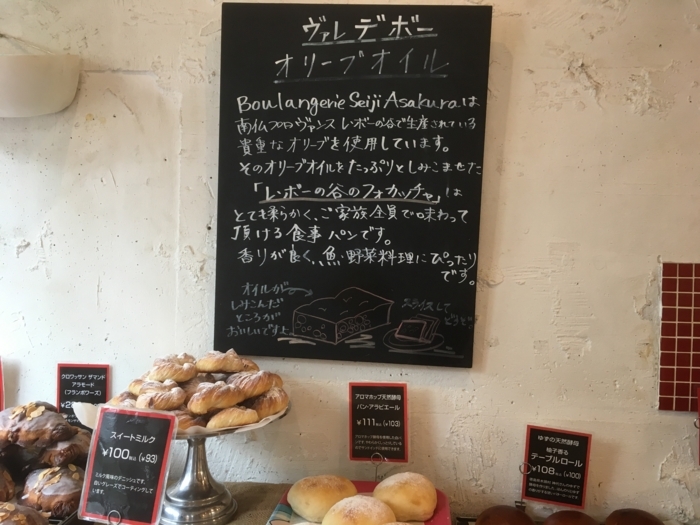 ヴァレデボー
オリーブオイル
Boulangerie Seiji Asakuraは
南仏プロヴァンス レボーの谷で生産されている
貴重なオリーブを使用しています。
そのオリーブオイルをたっぷりとしみこませた
「レボーの谷のフォカッチャ」は
とても柔らかく、ご家族全員で味わって
頂ける食事パンです。
香りが良く、魚・野菜料理にぴったり
です。
オイルが
しみこんだ
ところが
おいしいですよ
スライスして
クロワッサン ザマンド
アラモード
(フランボワーズ)
スイートミルク
¥100税込(¥93)
ミルク風味のデニッシュです。
白いグレーズでコーティングして
います。
アロマホップ天然酵母
パン・アラビエール
¥111税込(¥103)
ゆずの天然酵母
柚子香る
テーブルロール
¥108税込(¥100)